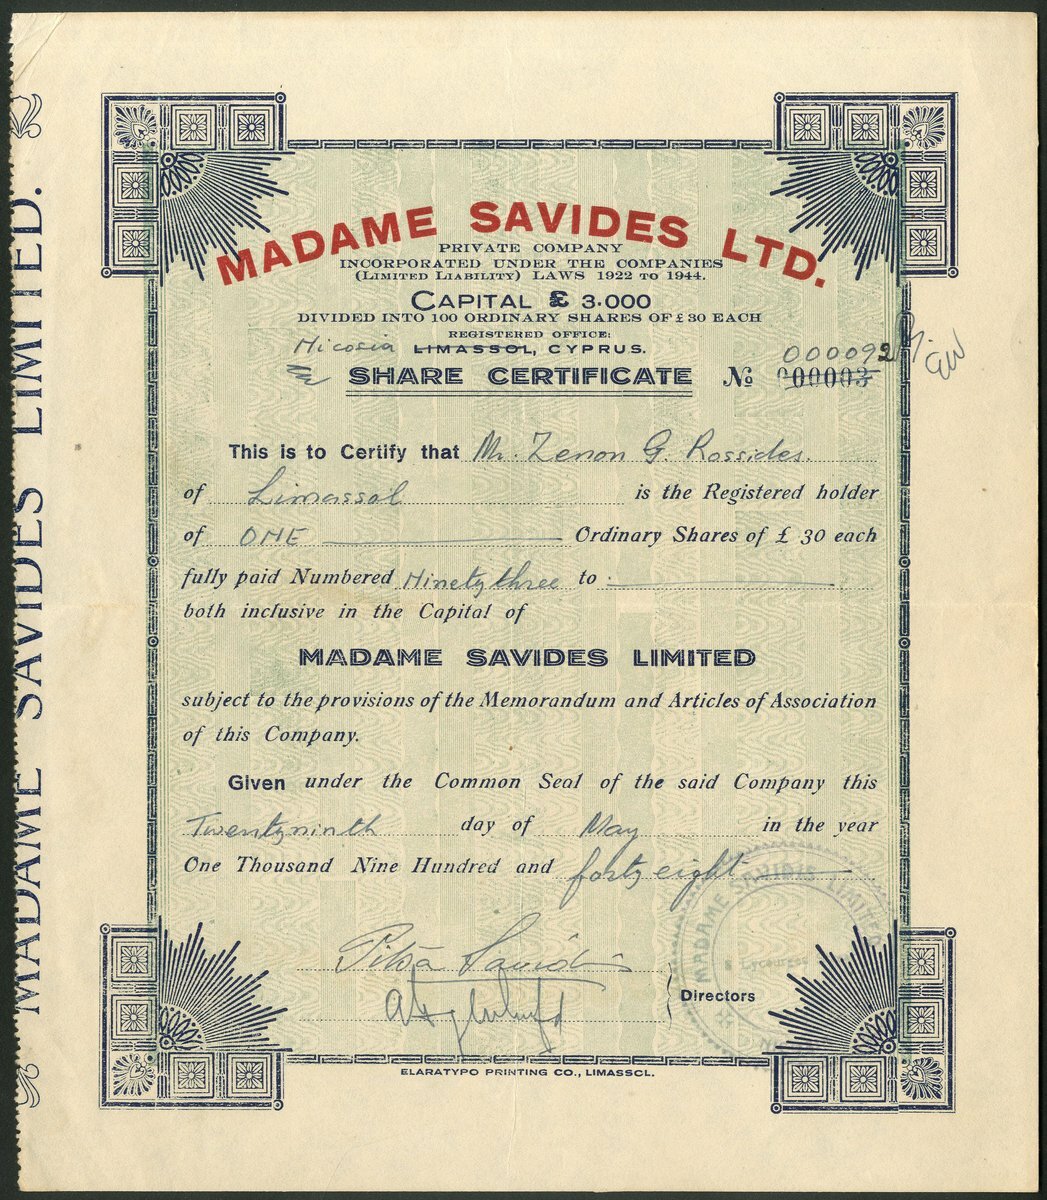 MADAME SAVIDES LIMITED.
MADAME SAVIDES LTD.
PRIVATE COMPANY
INCORPORATED UNDER THE COMPANIES
(LIMITED LIABILITY) LAWS 1922 TO 1944.
CAPITAL £ 3.000
DIVIDED INTO 100 ORDINARY SHARES OF £ 30 EACH
REGISTERED OFFICE:
Nicosia LIMASSOL, CYPRUS.
000092
SHARE CERTIFICATE No 000003
This is to Certify that Mr. Zenon G. Rossides.
of Limassol is the Registered holder
of ONE Ordinary Shares of £ 30 each
fully paid Numbered Ninety three to
both inclusive in the Capital of
MADAME SAVIDES LIMITED
subject to the provisions of the Memorandum and Articles of Association
of this Company.
Given under the Common Seal of the said Company this
Twentyninth day of May in the year
One Thousand Nine Hundred and forty eight
MADAME SAVIDIS LIMITED
Lycourgos
Directors
ELARATYPO PRINTING CO., LIMASSOL.